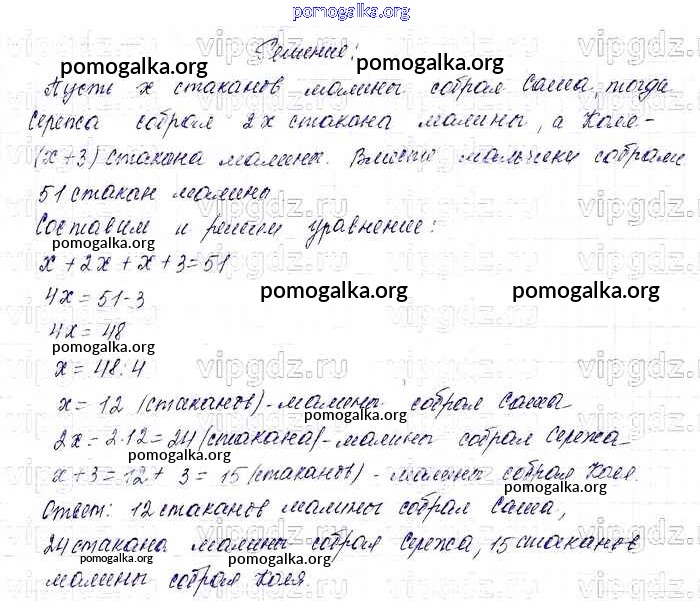 pomogalka.org
Решение:
pomogalka.org pomogalka.org
Пусть х стаканов малины собрал Саша, тогда
Сережа собрал 2х стакана малины, а Коля -
(х+3) стакана малины. Вместе мальчики собрали
51 стакан малины
Составим и решим уравнение:
pomogalka.org
х + 2х + х + 3 = 51
4х = 51-3
pomogalka.org pomogalka.org
4х = 48
pomogalka.org
х = 48:4
х = 12 (стаканов) - малины собрал Саша
pomogalka.org
2х = 2·12 = 24 (стакана) - малины собрал Сережа
pomogalka.org
х + 3 = 12 + 3 = 15 (стаканов) - малины собрал Коля.
pomogalka.org
Ответ: 12 стаканов малины собрал Саша,
24 стакана малины собрал Сережа, 15 стаканов
pomogalka.org pomogalka.org
малины собрал Коля.
vipgdz.ru